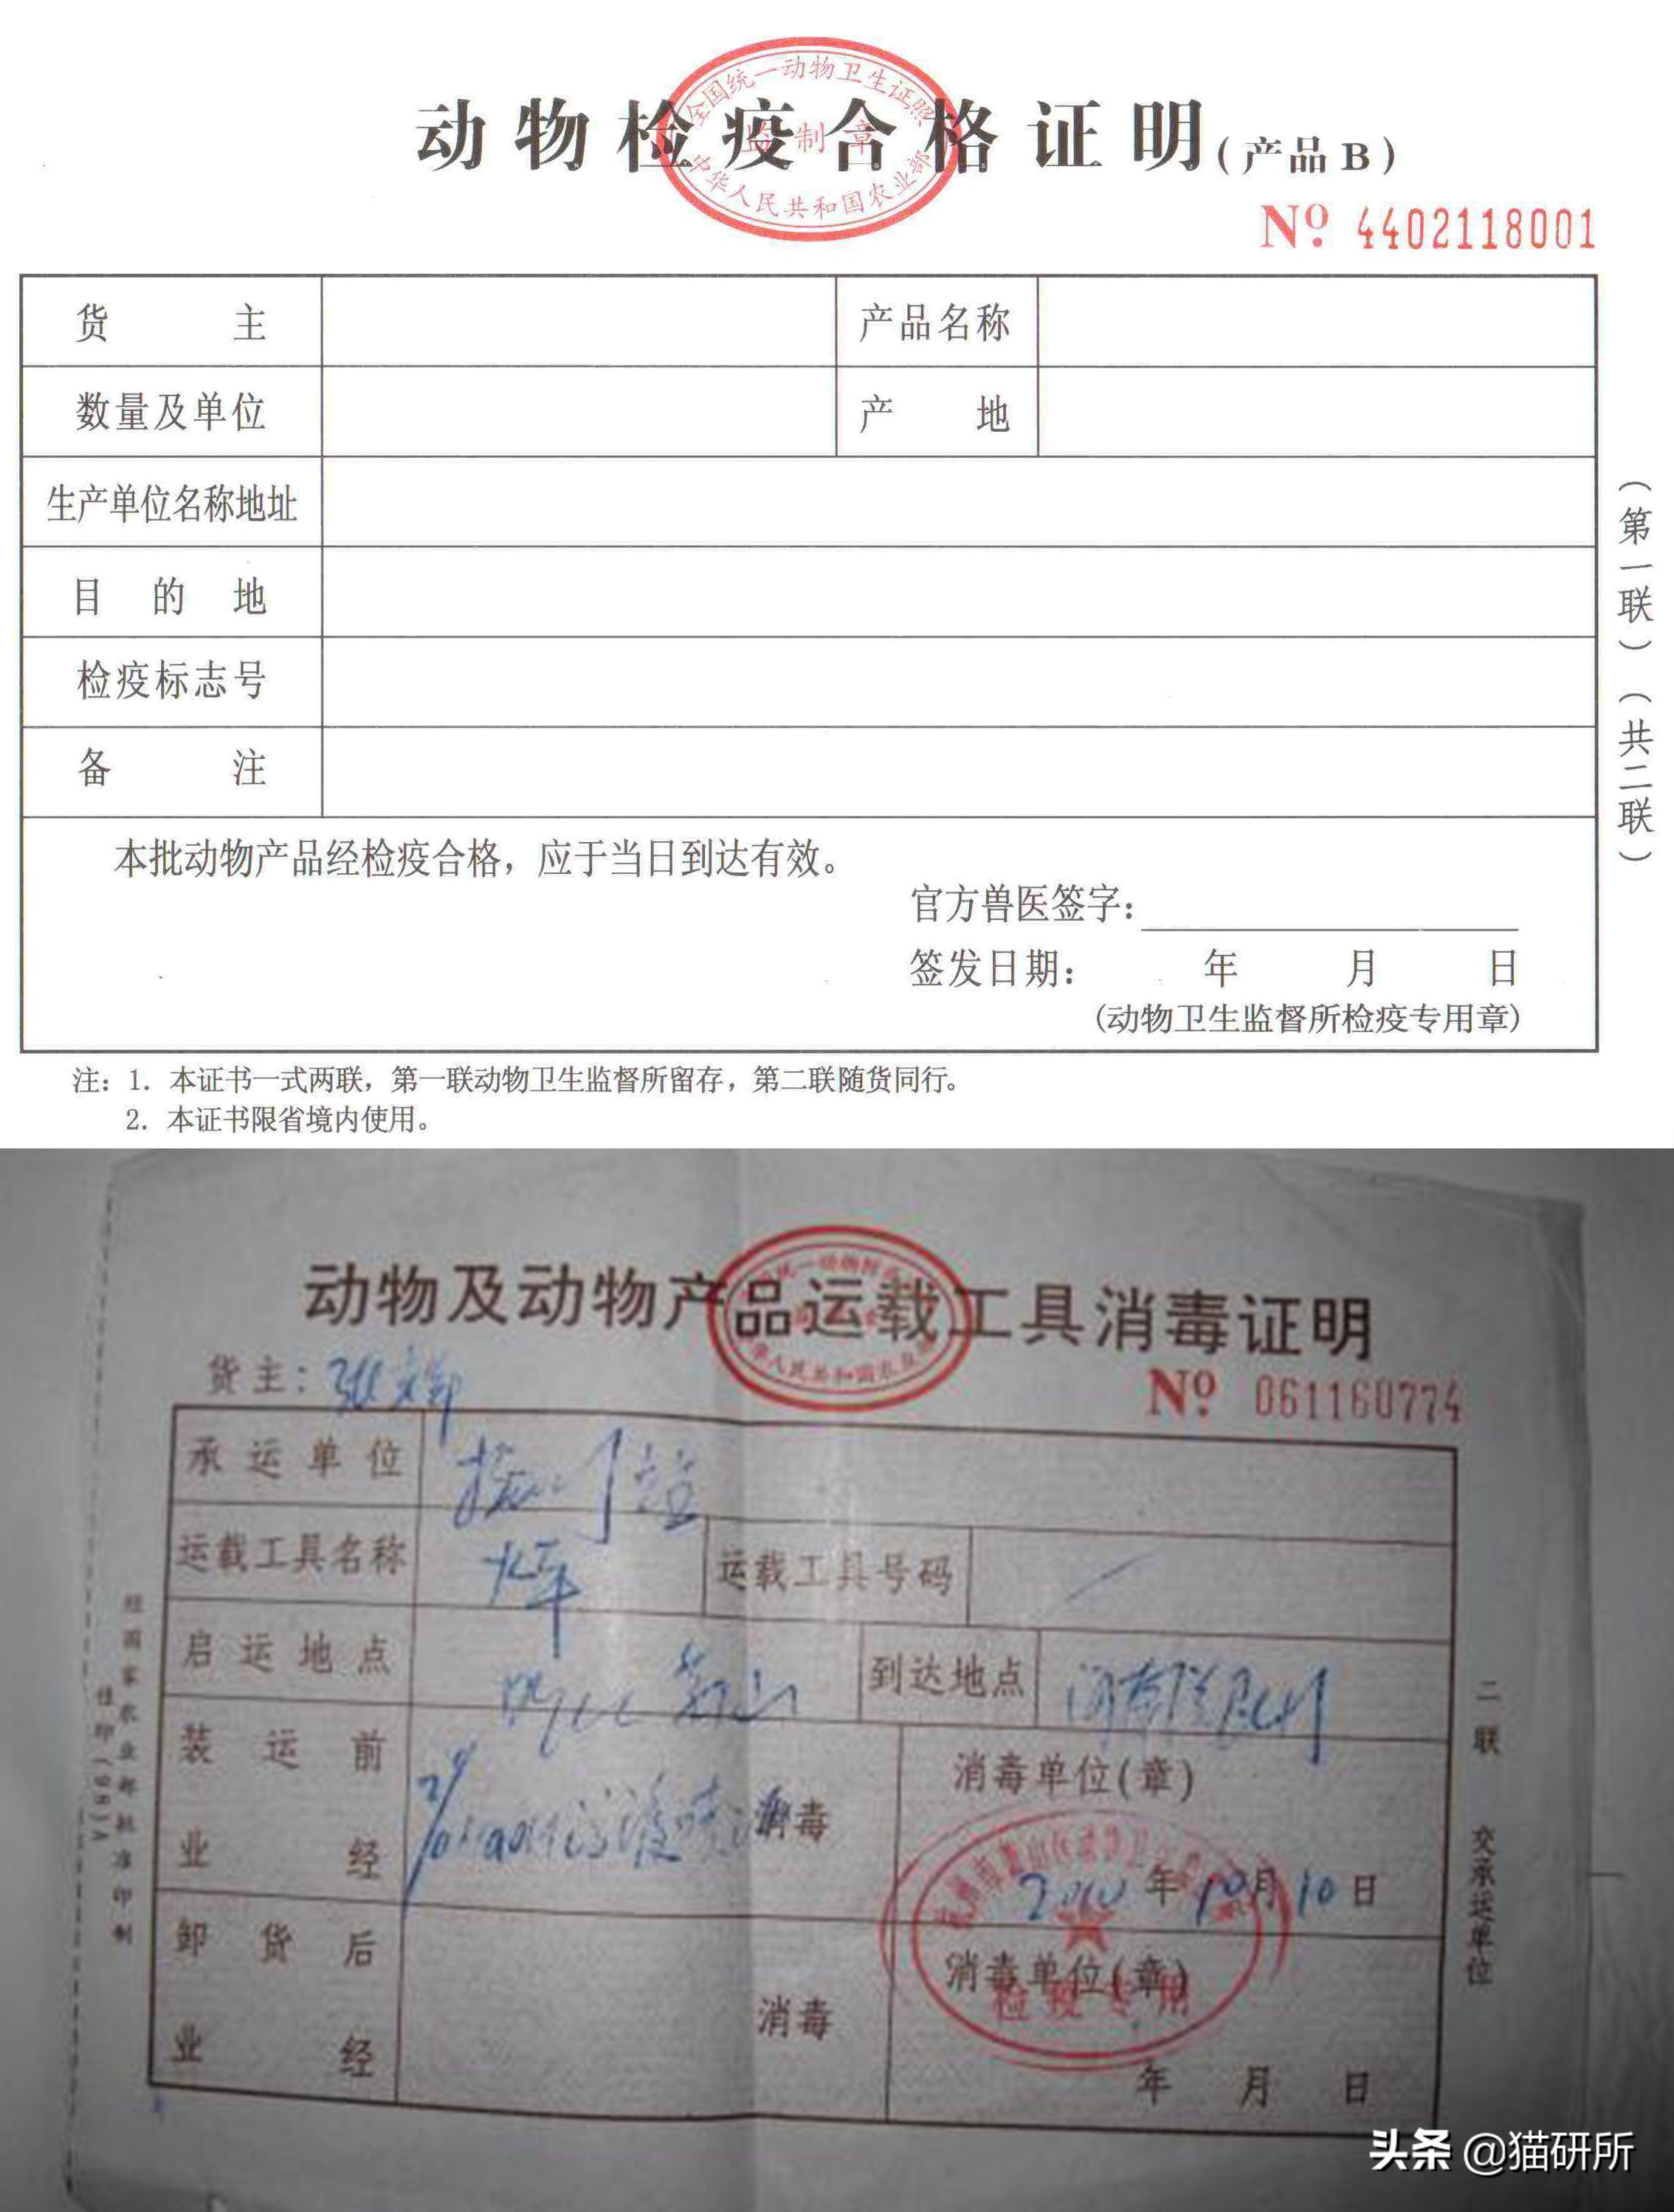 动物检疫合格证明(产品B)
全国统一动物卫生证照
监制章
中华人民共和国农业部
№ 4402118001
货主
产品名称
数量及单位
产地
生产单位名称地址
目的地
检疫标志号
备注
本批动物产品经检疫合格，应于当日到达有效。
官方兽医签字：
签发日期： 年 月 日
(动物卫生监督所检疫专用章)
(第一联)(共二联)
注：1. 本证书一式两联，第一联动物卫生监督所留存，第二联随货同行。
2. 本证书限省境内使用。
动物及动物产品运载工具消毒证明
华人民共和国农业
货主：
№ 061160774
承运单位
运载工具名称
火车
运载工具号码
启运地点
到达地点
装运前
业经
消毒
消毒单位(章)
2010年10月10日
卸货后
业经
消毒
消毒单位(章)
检疫专用
年 月 日
二联 交承运单位
头条 @猫研所